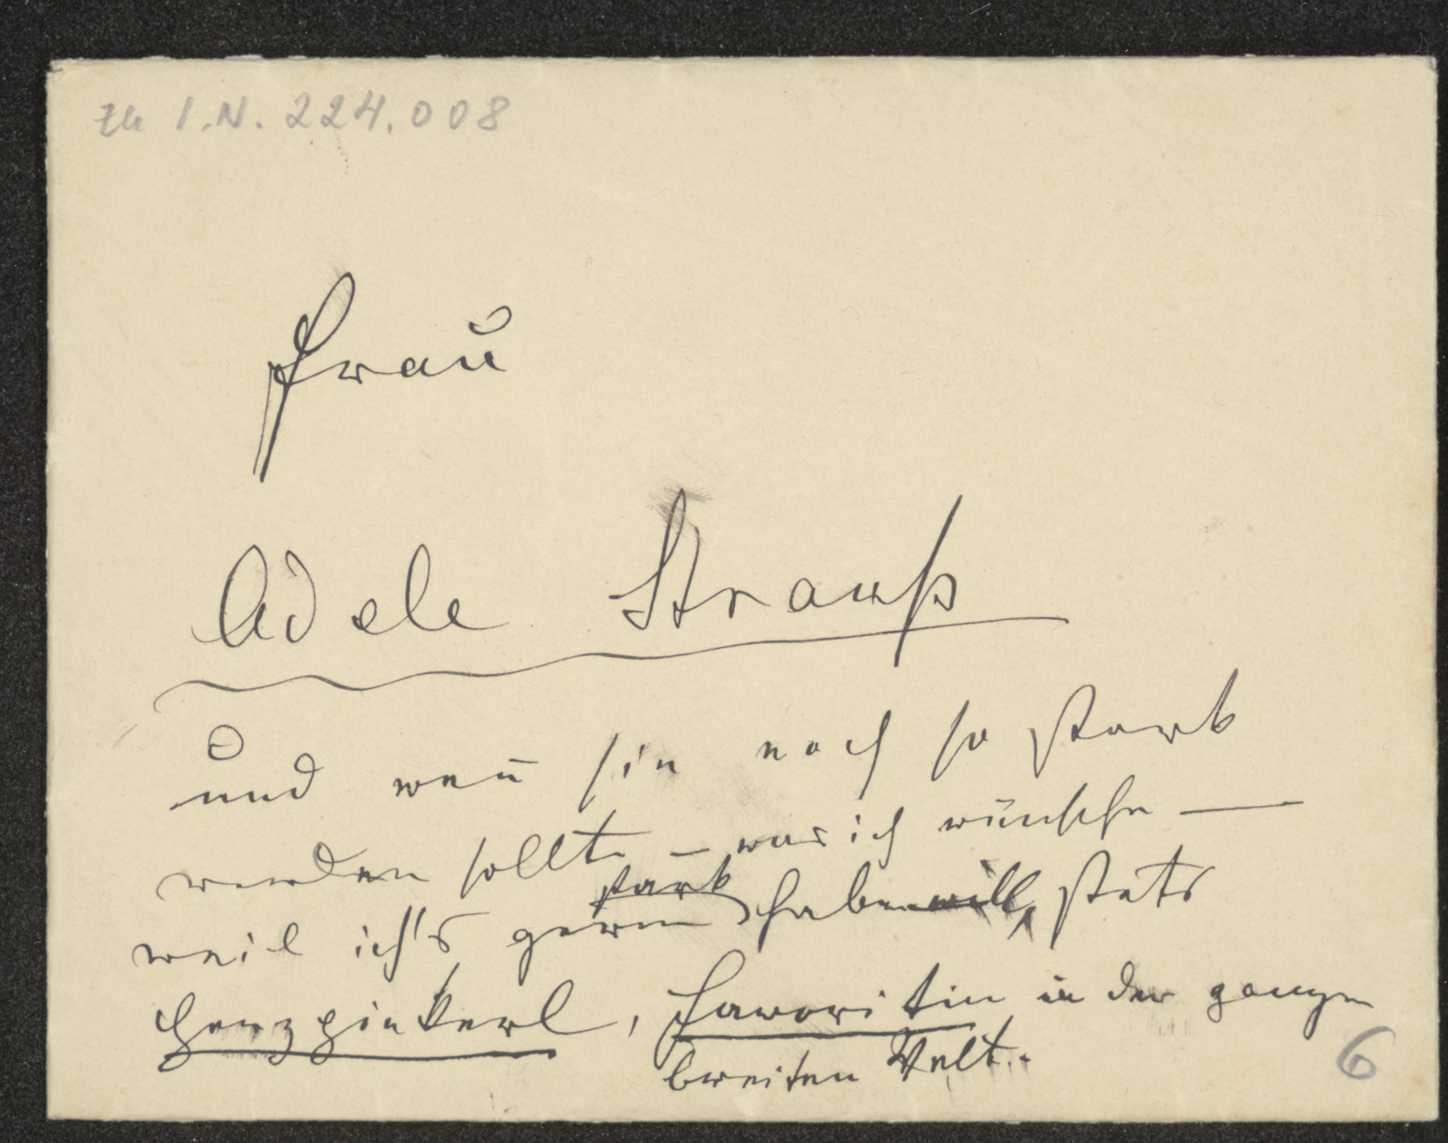 Zu I.N. 224.008
Frau
Adele Strauß
und wen̄ sie noch so stark
werden sollte – was ich wünsche –
stark
weil ich's gerne haben will, stets
Herzpinkerl, Favoritin in der ganzen
breiten Welt.
6